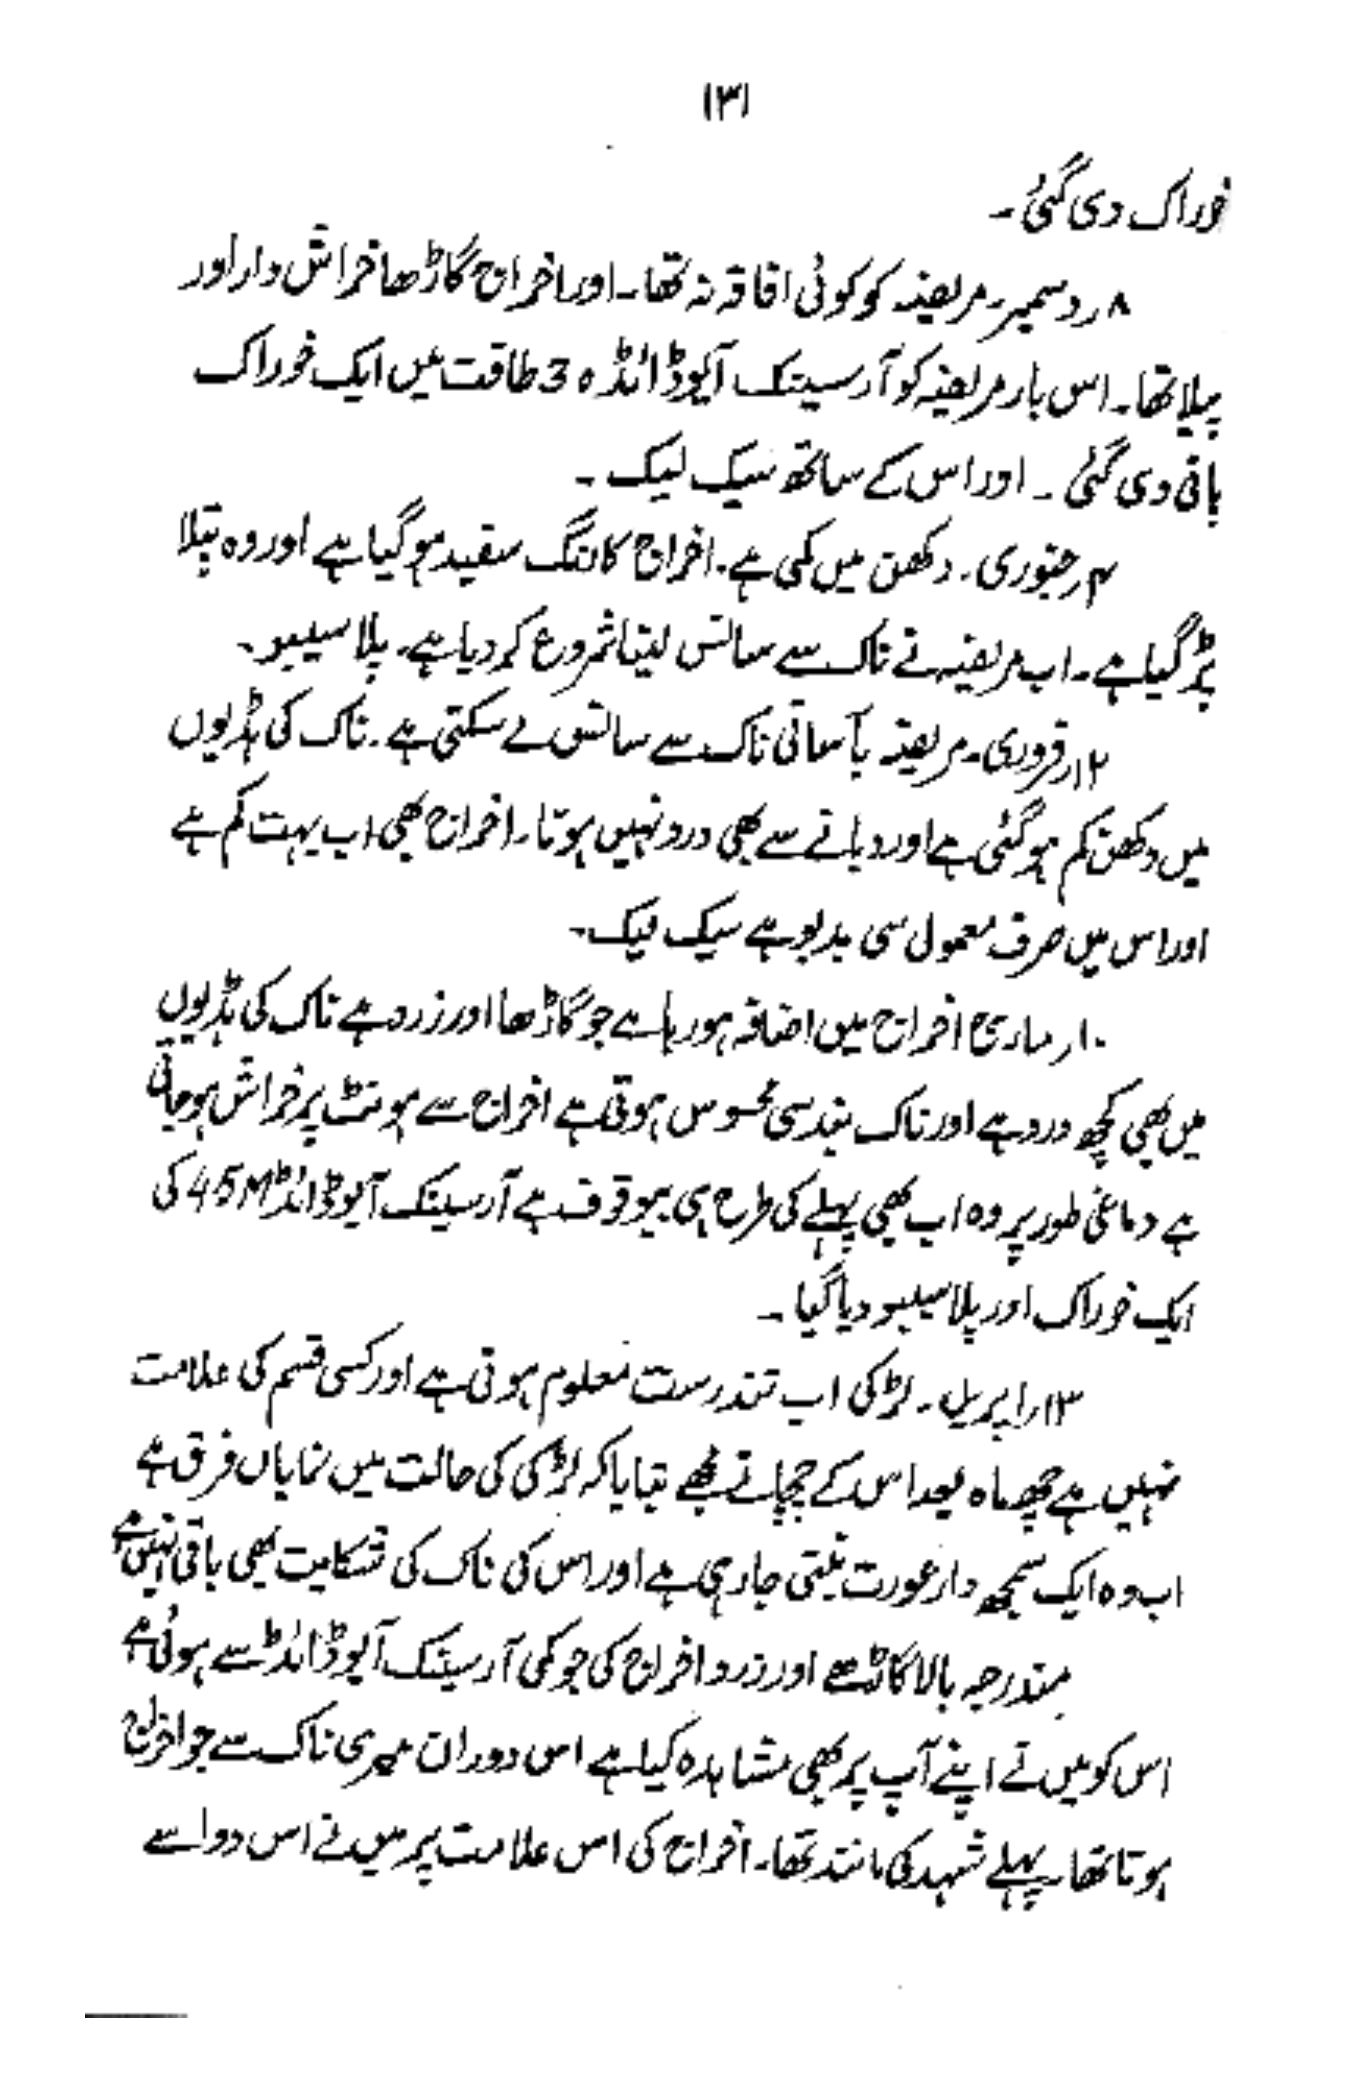 ۱۳۱
خوراک دی گئی۔
۸ر دسمبر۔ مریضہ کو کوئی افاقہ نہ تھا۔ اور اخراج گاڑھا خراش دار اور
پیلا تھا۔ اس بار مریضہ کو آرسینک آیوڈائڈ 30 طاقت میں ایک خوراک
باقی دی گئی ۔ اور اس کے ساتھ سیک لیک ۔
۴ر جنوری۔ دکھن میں کمی ہے۔ اخراج کا رنگ سفید ہو گیا ہے اور وہ پتلا
پڑ گیا ہے۔ اب مریضہ نے ناک سے سانس لینا شروع کر دیا ہے۔ پلاسیبو۔
۱۲ر فروری۔ مریضہ بآسانی ناک سے سانس لے سکتی ہے۔ ناک کی ہڈیوں
میں دکھن کم ہو گئی ہے اور دبانے سے بھی درد نہیں ہوتا۔ اخراج بھی اب بہت کم ہے
اور اس میں صرف معمولی سی بدبو ہے سیک لیک۔
۱۰ر مارچ اخراج میں اضافہ ہو رہا ہے جو گاڑھا اور زرد ہے ناک کی ہڈیوں
میں بھی کچھ درد ہے اور ناک بند سی محسوس ہوتی ہے اخراج سے ہونٹ پر خراش ہو جاتی
ہے دماغی طور پر وہ اب بھی پہلے کی طرح ہی بیوقوف ہے آرسینک آیوڈائڈ 45M کی
ایک خوراک اور پلاسیبو دیا گیا ۔
۱۳ر اپریل۔ لڑکی اب تندرست معلوم ہوتی ہے اور کسی قسم کی علامت
نہیں ہے چھ ماہ بعد اس کے چچا نے مجھے بتایا کہ لڑکی کی حالت میں نمایاں فرق ہے
اب وہ ایک سمجھ دار عورت بنتی جا رہی ہے اور اس کی ناک کی شکایت بھی باقی نہیں ہے
مندرجہ بالا گاڑھے اور زرد اخراج کی جو کمی آرسینک آیوڈائڈ سے ہوئی ہے
اس کو میں نے اپنے آپ پر بھی مشاہدہ کیا ہے اس دوران میری ناک سے جو اخراج
ہوتا تھا۔ پہلے شہد کی مانند تھا۔ اخراج کی اس علامت پر میں نے اس دوا سے